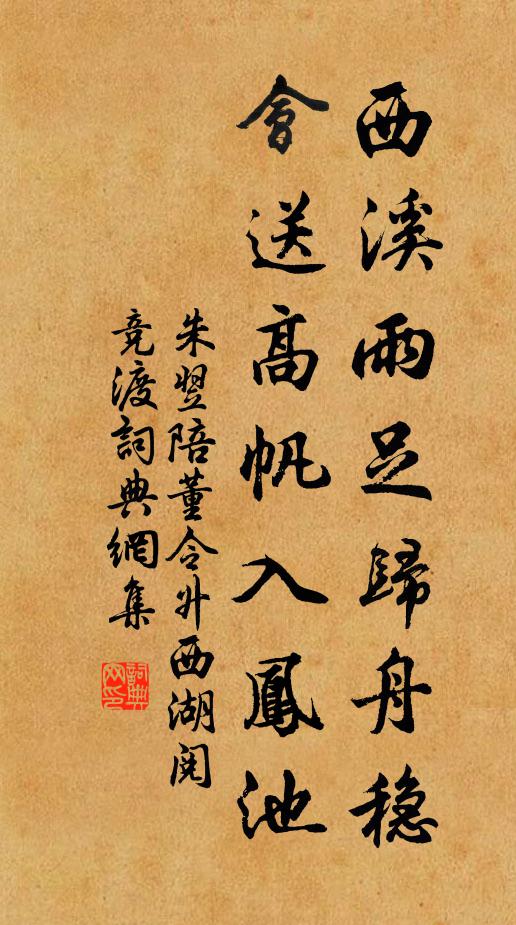 西溪雨足歸舟穩
會送高帆入鳳池
朱翌陪董令升西湖閱
競渡詞典網集
詞典网印